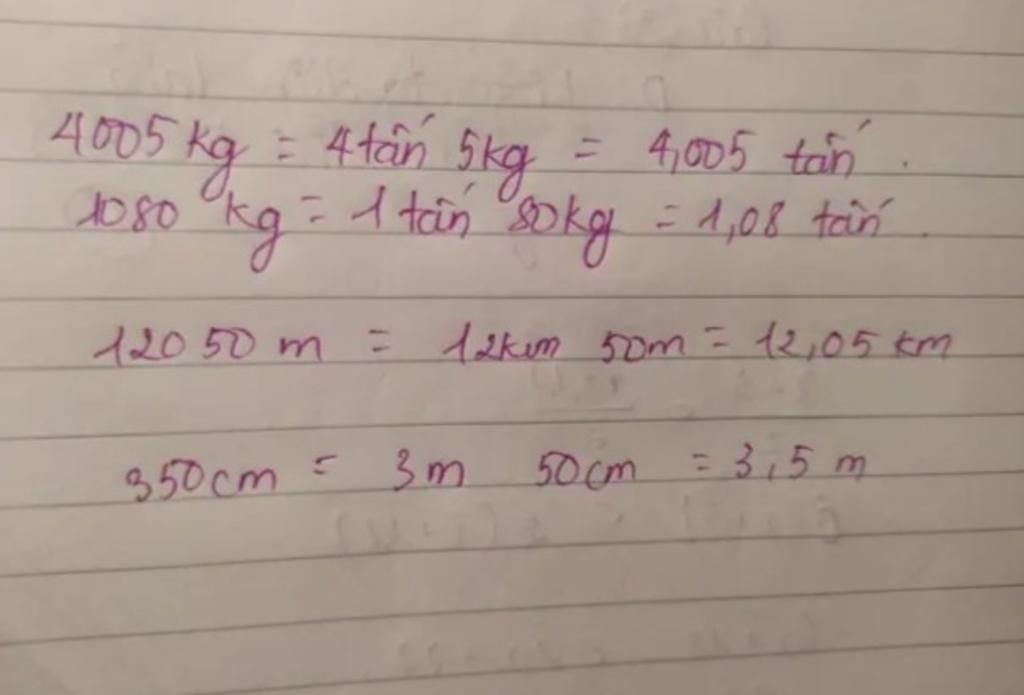 4005 kg = 4 tấn 5kg = 4,005 tấn.
1080 kg = 1 tấn 80kg = 1,08 tấn.
12050 m = 12km 50m = 12,05 km
350cm = 3m 50cm = 3,5 m